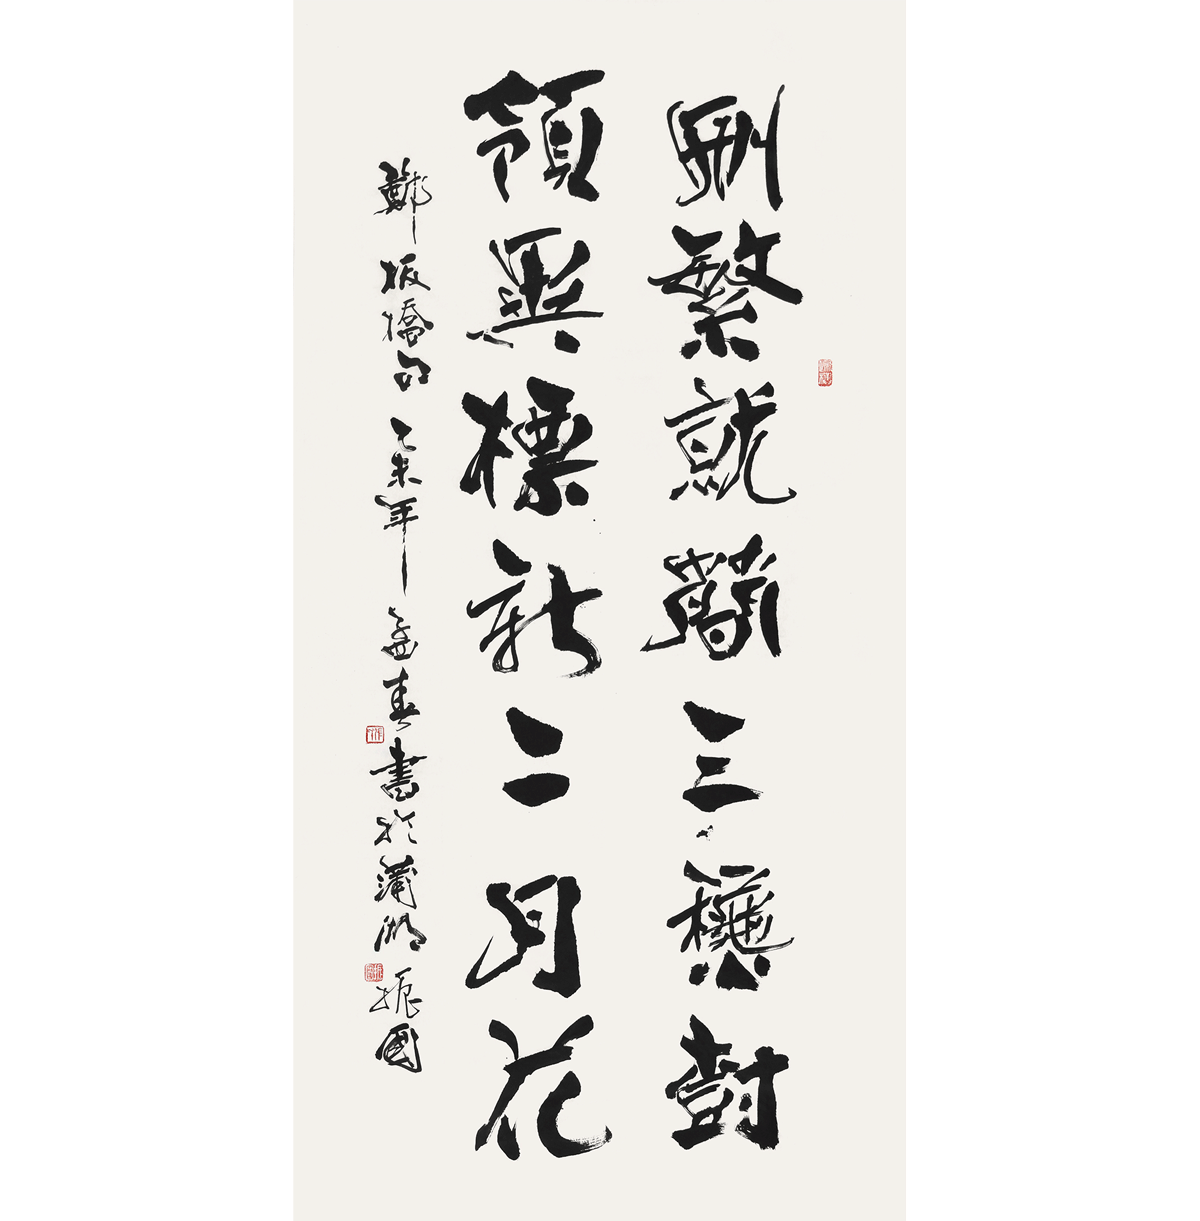 刪繁就簡三龝樹
領異標新二月花
鄭板橋句 乙未年孟春書於蒲湖 振國